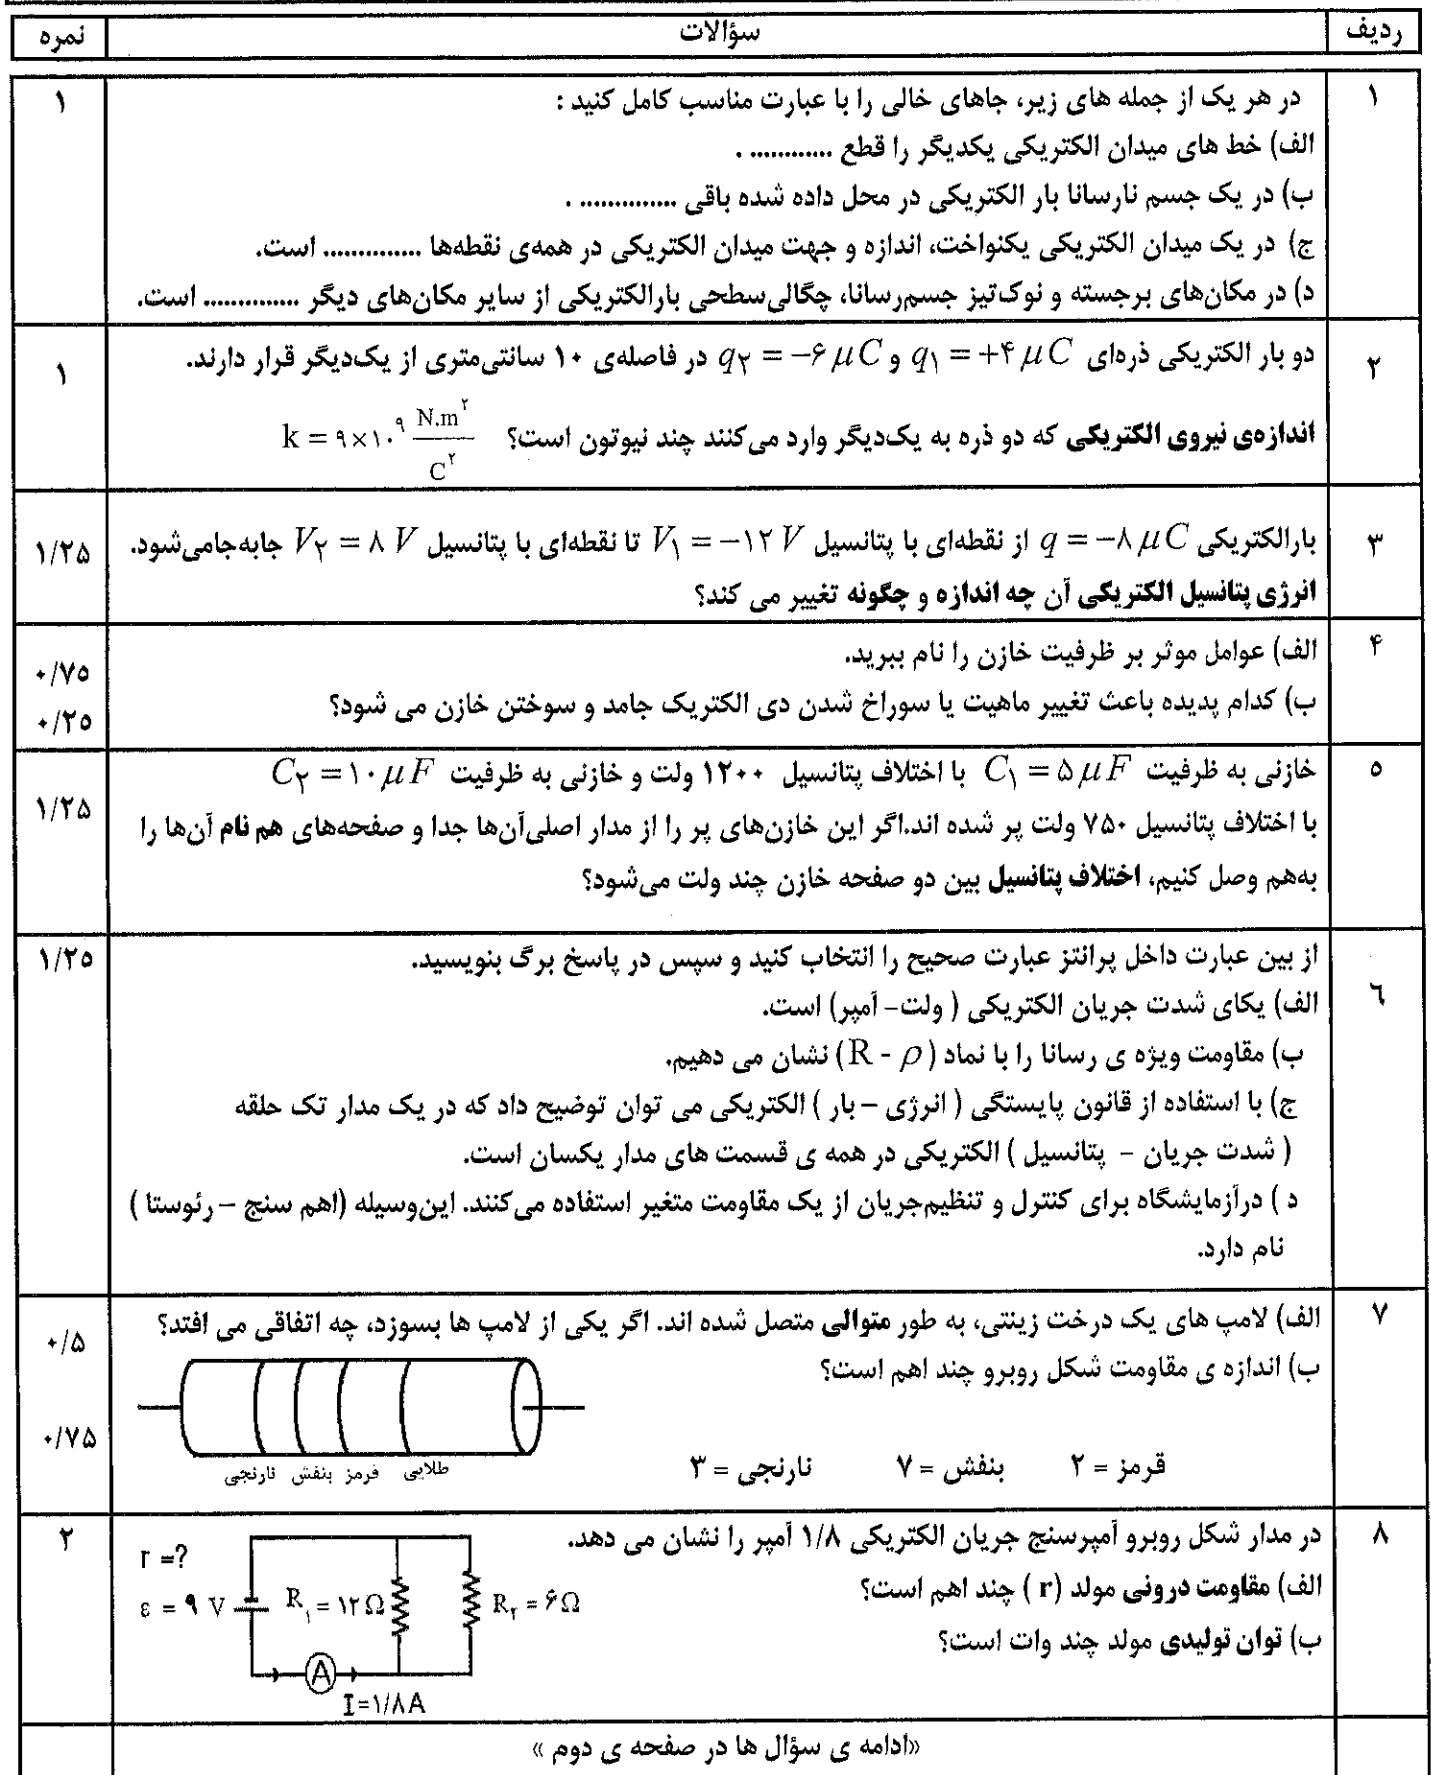 ردیف سؤالات نمره
۱ در هر یک از جمله های زیر، جاهای خالی را با عبارت مناسب کامل کنید : ۱
الف) خط های میدان الکتریکی یکدیگر را قطع ............ .
ب) در یک جسم نارسانا بار الکتریکی در محل داده شده باقی .............. .
ج) در یک میدان الکتریکی یکنواخت، اندازه و جهت میدان الکتریکی در همه‌ی نقطه‌ها .............. است.
د) در مکان‌های برجسته و نوک‌تیز جسم‌رسانا، چگالی‌سطحی بارالکتریکی از سایر مکان‌های دیگر .............. است.
۲ دو بار الکتریکی ذره‌ای q₁ = +۴ μC و q₂ = −۶ μC در فاصله‌ی ۱۰ سانتی‌متری از یک‌دیگر قرار دارند. ۱
اندازه‌ی نیروی الکتریکی که دو ذره به یک‌دیگر وارد می‌کنند چند نیوتون است؟ k = ۹×۱۰^۹ N.m^۲/C^۲
۳ بارالکتریکی q = −۸ μC از نقطه‌ای با پتانسیل V₁ = −۱۲ V تا نقطه‌ای با پتانسیل V₂ = ۸ V جابه‌جامی‌شود. ۱/۲۵
انرژی پتانسیل الکتریکی آن چه اندازه و چگونه تغییر می کند؟
۴ الف) عوامل موثر بر ظرفیت خازن را نام ببرید. ۰/۷۵
ب) کدام پدیده باعث تغییر ماهیت یا سوراخ شدن دی الکتریک جامد و سوختن خازن می شود؟ ۰/۲۵
۵ خازنی به ظرفیت C₁ = ۵ μF با اختلاف پتانسیل ۱۲۰۰ ولت و خازنی به ظرفیت C₂ = ۱۰ μF ۱/۲۵
با اختلاف پتانسیل ۷۵۰ ولت پر شده اند.اگر این خازن‌های پر را از مدار اصلی‌آن‌ها جدا و صفحه‌های هم نام آن‌ها را
به‌هم وصل کنیم، اختلاف پتانسیل بین دو صفحه خازن چند ولت می‌شود؟
۶ از بین عبارت داخل پرانتز عبارت صحیح را انتخاب کنید و سپس در پاسخ برگ بنویسید. ۱/۲۵
الف) یکای شدت جریان الکتریکی ( ولت- آمپر) است.
ب) مقاومت ویژه ی رسانا را با نماد ( R - ρ ) نشان می دهیم.
ج) با استفاده از قانون پایستگی ( انرژی – بار ) الکتریکی می توان توضیح داد که در یک مدار تک حلقه
( شدت جریان - پتانسیل ) الکتریکی در همه ی قسمت های مدار یکسان است.
د ) درآزمایشگاه برای کنترل و تنظیم‌جریان از یک مقاومت متغیر استفاده می‌کنند. این‌وسیله (اهم سنج – رئوستا )
نام دارد.
۷ الف) لامپ های یک درخت زینتی، به طور متوالی متصل شده اند. اگر یکی از لامپ ها بسوزد، چه اتفاقی می افتد؟ ۰/۵
ب) اندازه ی مقاومت شکل روبرو چند اهم است؟ ۰/۷۵
قرمز = ۲ بنفش = ۷ نارنجی = ۳
طلایی قرمز بنفش نارنجی
۸ در مدار شکل روبرو آمپرسنج جریان الکتریکی ۱/۸ آمپر را نشان می دهد. ۲
الف) مقاومت درونی مولد (r ) چند اهم است؟
ب) توان تولیدی مولد چند وات است؟
r =?
ε = ۹ V R₁ = ۱۲ Ω R₂ = ۶ Ω
A
I=۱/۸A
«ادامه ی سؤال ها در صفحه ی دوم »